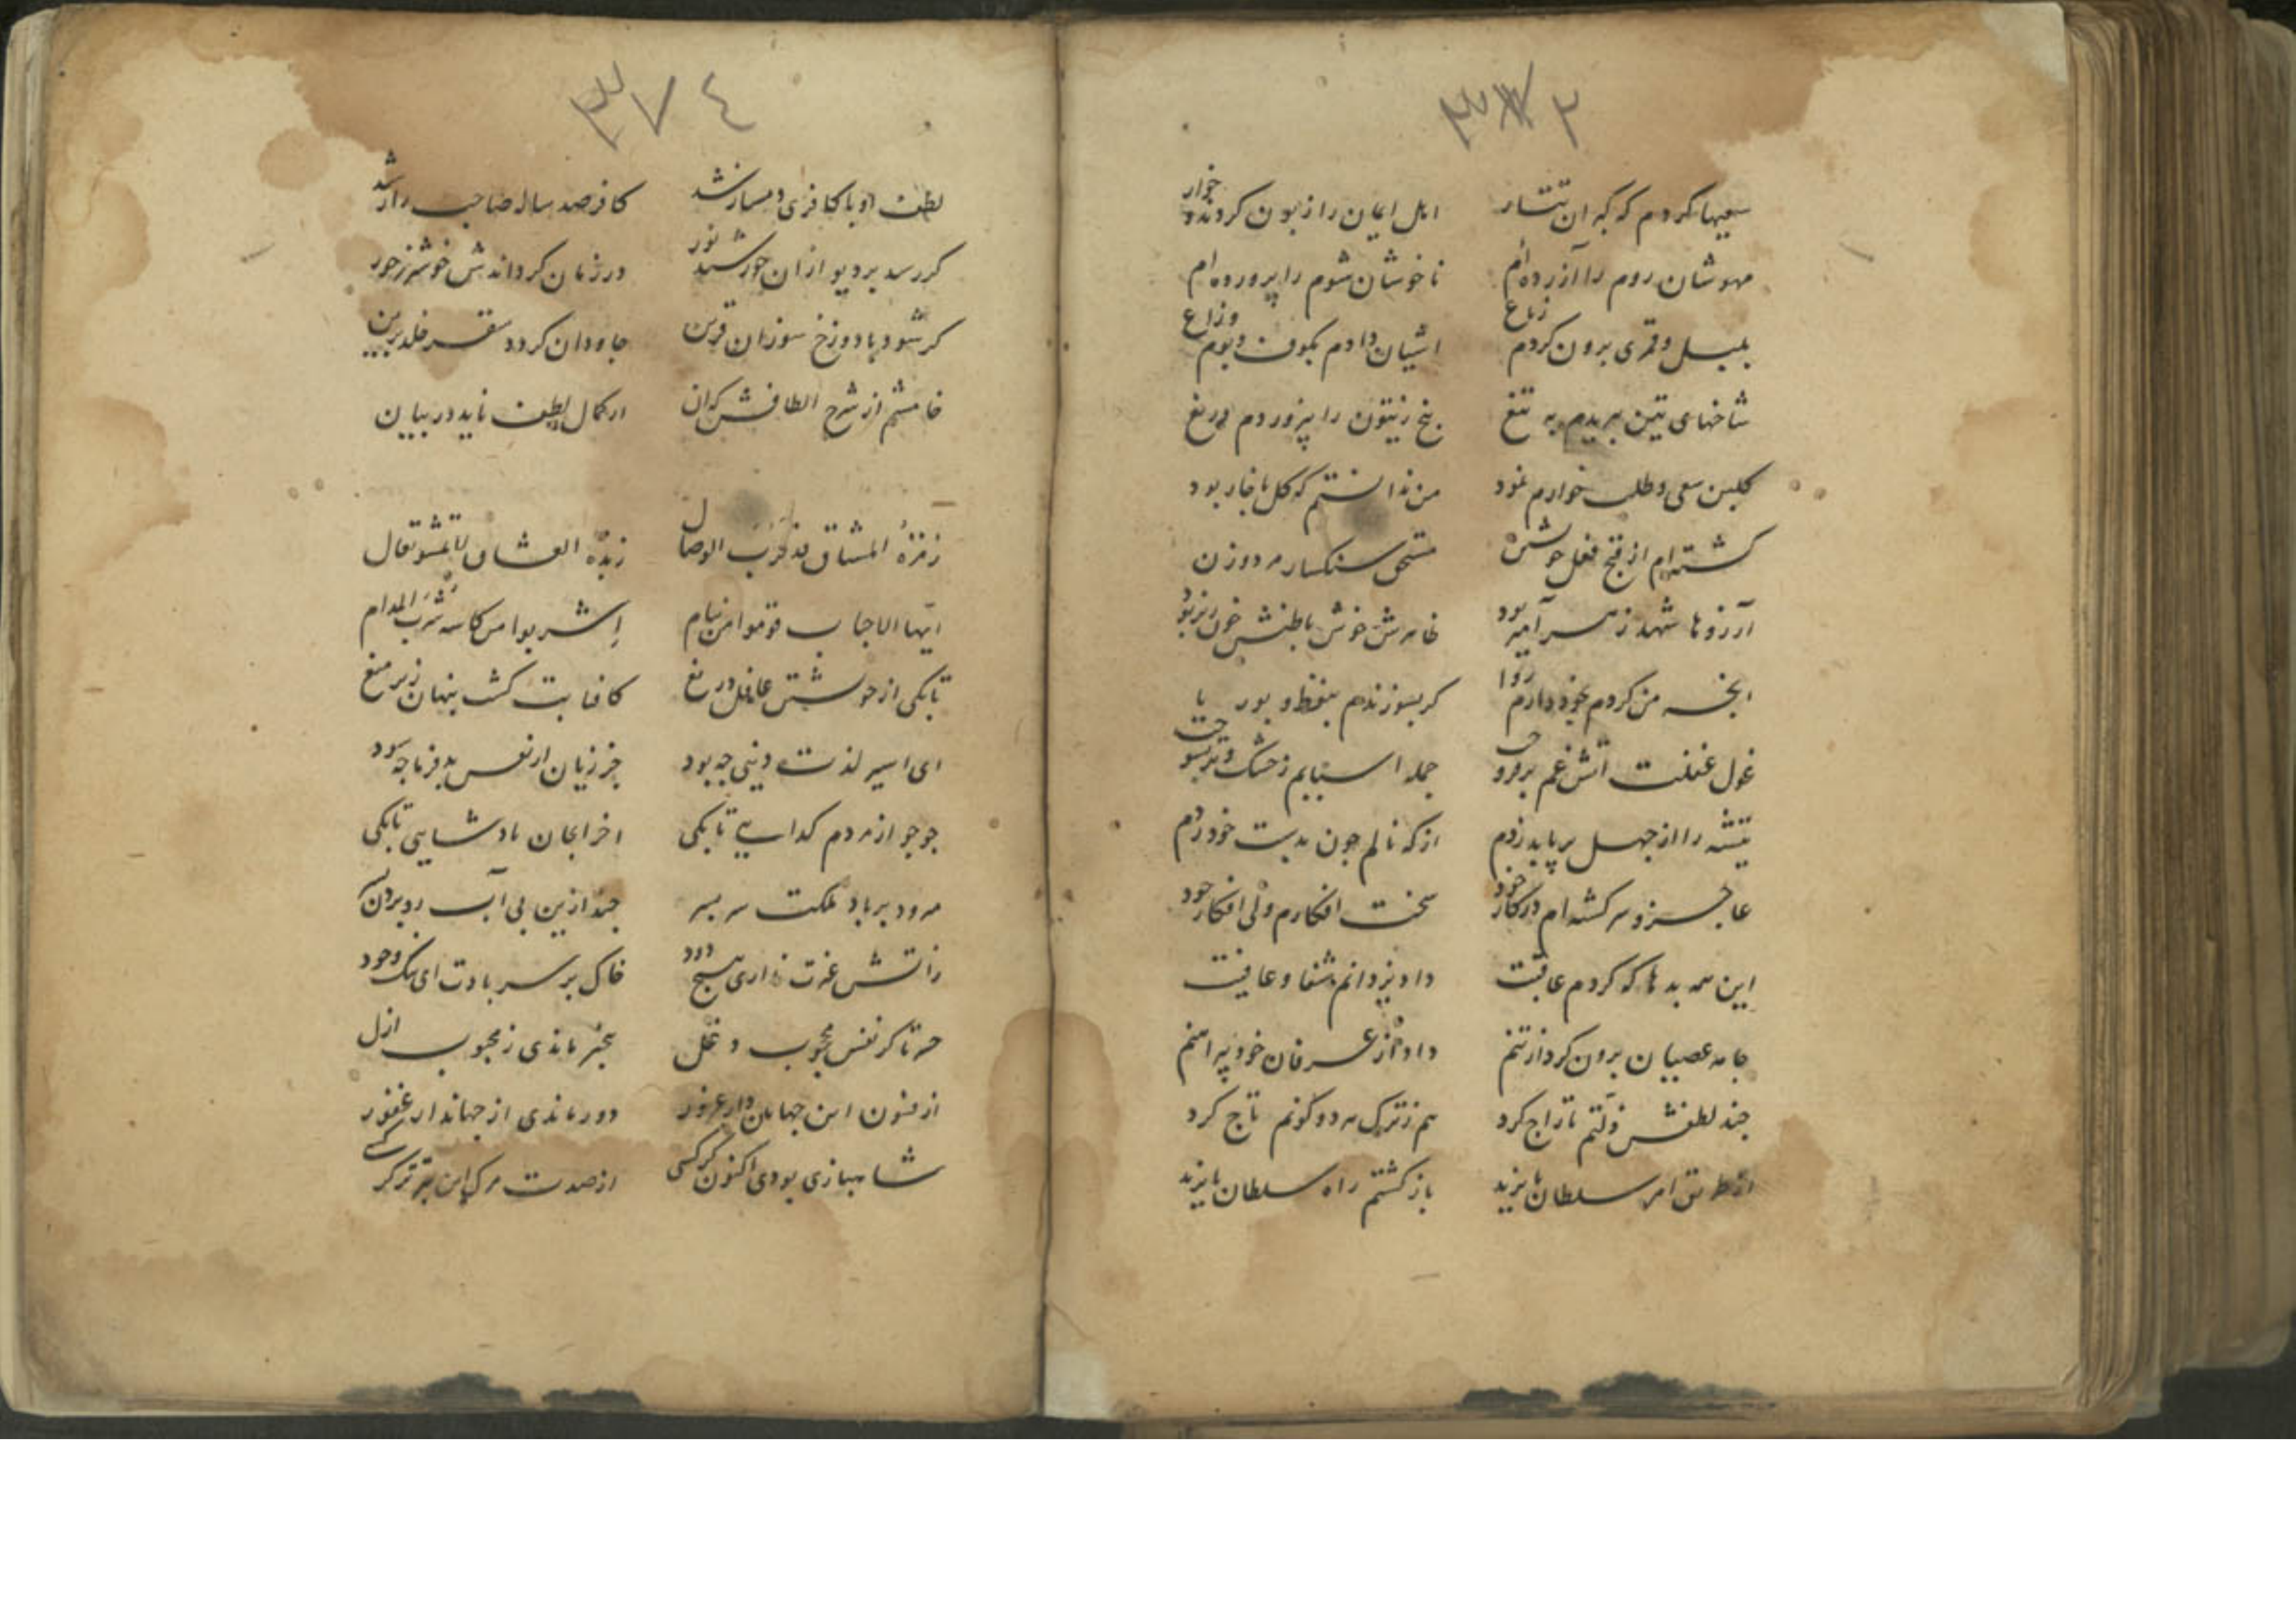 ۳۷۲
سعیها کردم که کبران تتار اهل ایمان را زبون کردند و خوار
مهوشان روم را آزرده‌ام ناخوشان شوم را پرورده‌ام
بلبل و قمری برون کردم ز باغ اشیان دادم بکوف و بوم و زاغ
شاخهای تین بریدم به تیغ بیخ زیتون را پروردم دریغ
کلبن سعی و طلب خوارم نمود من ندانستم که کل با خار بود
کشته‌ام از قبح فعل خویشتن مستحق سنکسار مرد و زن
آرزوها شهد زهر آمیز بود ظاهرش خوش باطنش خون ریز بود
انچه من کردم بخود دارم روا کر بسوزندم بنفط و بوریا
غول غفلت آتش غم برفروخت جمله اسبابم ز خشک و تر بسوخت
تیشه را از جهل بر پاید زدم از که نالم چون بدست خود زدم
عاجز و سرکشته‌ام در کار خود سخت افکارم ولی افکار خود
این همه بدها که کردم عاقبت داد یزدانم شفا و عافیت
جامه عصیان برون کرد از تنم داد از عرفان خود پیراهنم
جند لطفش ذلتم تاراج کرد هم ز ترک هر دو کونم تاج کرد
از طریق امر سلطان بایزید بازکشتم راه سلطان بایزید
۳۷٤
لطف او با کافری دمساز شد کافر صد ساله صاحب راز شد
کر رسد بر دیو ازان خورشید نور در زمان کرداندش خوشتر ز حور
کر شود با دوزخ سوزان قرین جاودان کردد سقر خلد برین
خامشم از شرح الطافش کران از کمال لطف ناید در بیان
زمزة المشتاق قد قرب الوصال زبدة العشاق تعال
ایها الاحباب قوموا من نیام اشربوا من کاسه شرب المدام
تا بکی از خویشتن غافل دریغ کافتابت کشت پنهان زیر میغ
ای اسیر لذت دنیی چه بود جز زیان از نفس بدفرما چه سود
جو جو از مردم کدایی تا بکی اخر ایجان پادشاهی تابکی
میرود بر باد ملکت سر بسر چند ازین بی آب رو بردن
زآتش غیرت نداری هیچ دود خاک بر سر بادت ای وجود
بیخبر ماندی ز محبوب ازل
از فنون این جهان دار غرور دور ماندی از جهاندار غفور
شاهبازی بودی اکنون کرکسی